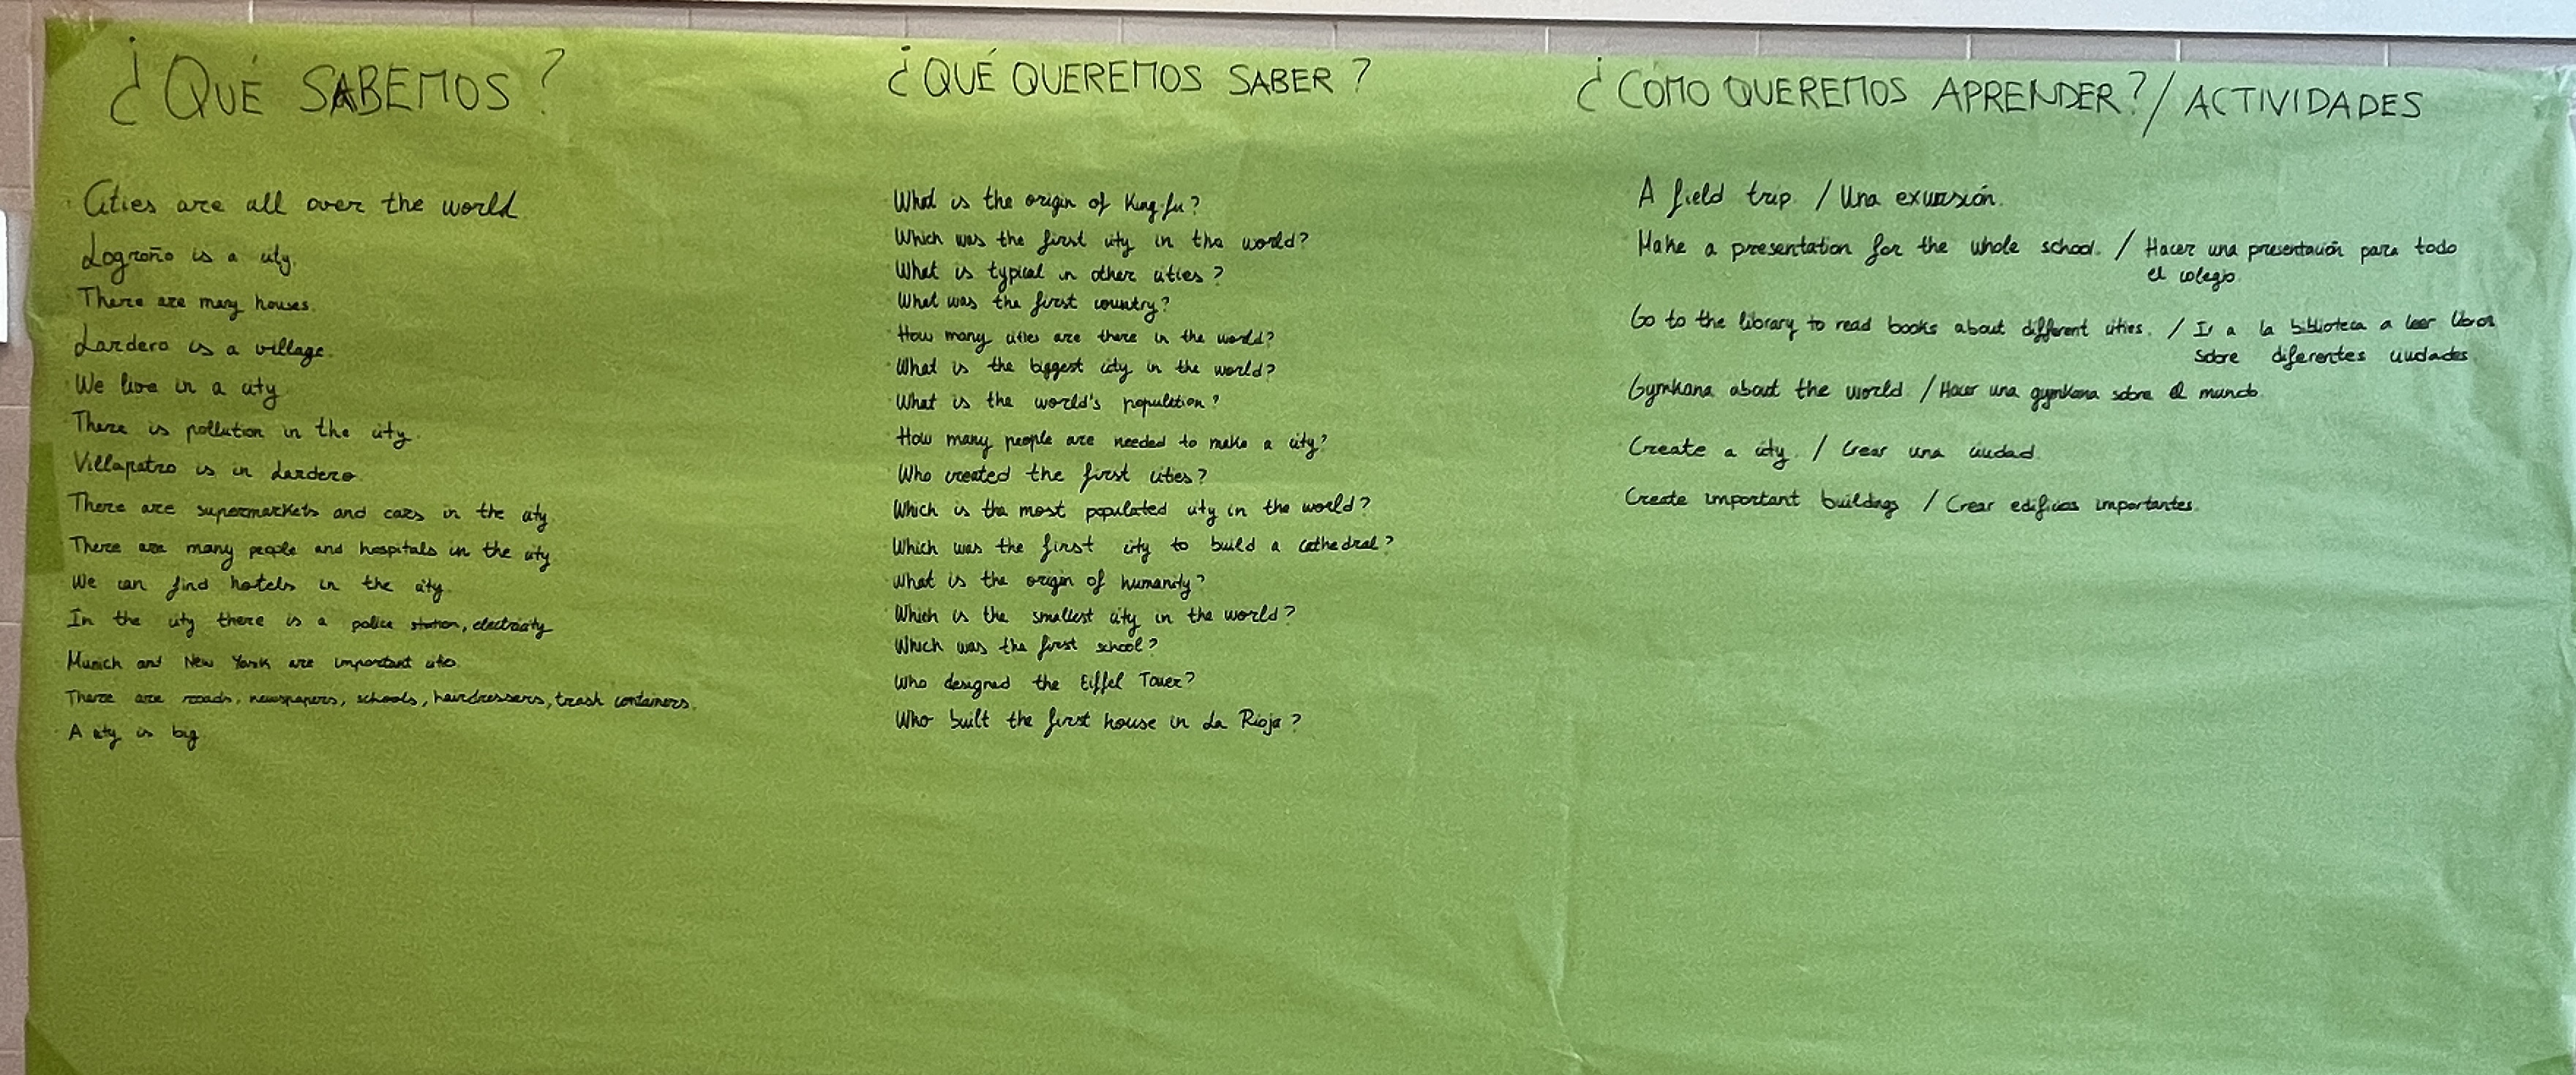 ¿QUÉ SABEMOS?
Cities are all over the world
Logroño is a city.
There are many houses.
Lardero is a village.
We live in a city
There is pollution in the city.
Villapatro is in Lardero.
There are supermarkets and cars in the city
There are many people and hospitals in the city
We can find hotels in the city.
In the city there is a police station, electricity
Munich and New York are important cities.
There are roads, newspapers, schools, hairdressers, trash containers.
A city is big
¿QUÉ QUEREMOS SABER?
What is the origin of Kung-fu?
Which was the first city in the world?
What is typical in other cities?
What was the first country?
How many cities are there in the world?
What is the biggest city in the world?
What is the world's population?
How many people are needed to make a city?
Who created the first cities?
Which is the most populated city in the world?
Which was the first city to build a cathedral?
What is the origin of humanity?
Which is the smallest city in the world?
Which was the first school?
Who designed the Eiffel Tower?
Who built the first house in La Rioja?
¿COMO QUEREMOS APRENDER? / ACTIVIDADES
A field trip / Una excursión.
Make a presentation for the whole school. / Hacer una presentación para todo
el colegio.
Go to the library to read books about different cities. / Ir a la biblioteca a leer libros
sobre diferentes ciudades.
Gymkana about the world / Hacer una gymkana sobre el mundo.
Create a city. / Crear una ciudad.
Create important buildings / Crear edificios importantes.